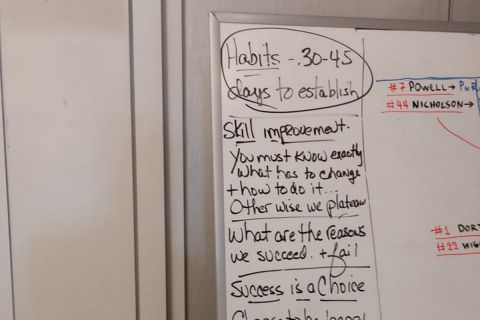 Habits - .30-45
days to establish
Skill improvement.
You must know exactly
what has to change
+ how to do it...
Other wise we plateau
What are the reasons
we succeed. + fail
Success is a Choice
Choose to be
#7 POWELL →
#44 NICHOLSON →
#1 DOR
#22 WIG